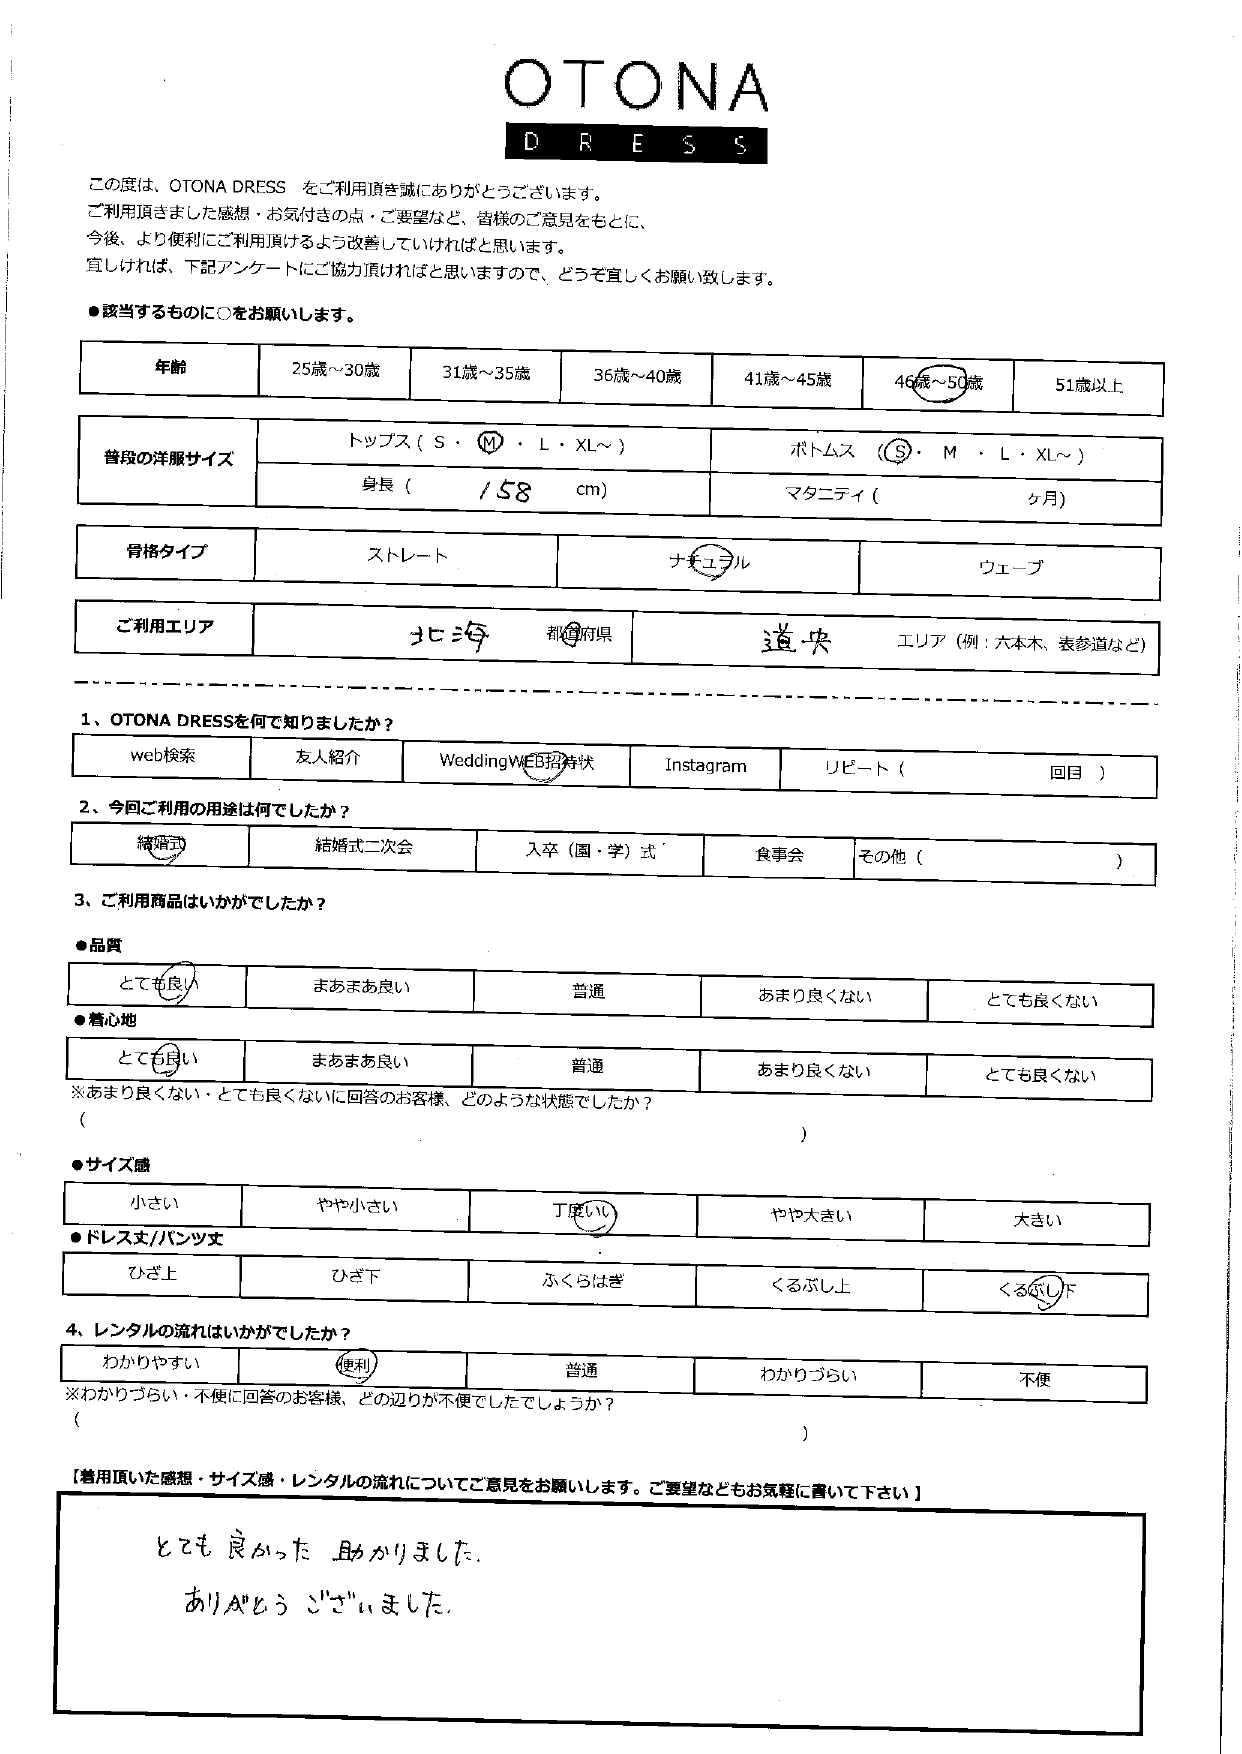 OTONA
DRESS
この度は、OTONA DRESS　をご利用頂き誠にありがとうございます。
ご利用頂きました感想・お気付きの点・ご要望など、皆様のご意見をもとに、
今後、より便利にご利用頂けるよう改善していければと思います。
宜しければ、下記アンケートにご協力頂ければと思いますので、どうぞ宜しくお願い致します。
●該当するものに○をお願いします。
年齢 25歳～30歳 31歳～35歳 36歳～40歳 41歳～45歳 46歳～50歳 51歳以上
普段の洋服サイズ トップス ( S ・ M ・ L ・ XL～ ) ボトムス ( S ・ M ・ L ・ XL～ )
身長 ( 158 cm) マタニティ ( ヶ月)
骨格タイプ ストレート ナチュラル ウェーブ
ご利用エリア 北海 都道府県 道央 エリア（例：六本木、表参道など）
1、OTONA DRESSを何で知りましたか？
web検索 友人紹介 WeddingWEB招待状 Instagram リピート ( 回目 )
2、今回ご利用の用途は何でしたか？
結婚式 結婚式二次会 入卒（園・学）式 食事会 その他 ( )
3、ご利用商品はいかがでしたか？
●品質
とても良い まあまあ良い 普通 あまり良くない とても良くない
●着心地
とても良い まあまあ良い 普通 あまり良くない とても良くない
※あまり良くない・とても良くないに回答のお客様、どのような状態でしたか？
( )
●サイズ感
小さい やや小さい 丁度いい やや大きい 大きい
●ドレス丈/パンツ丈
ひざ上 ひざ下 ふくらはぎ くるぶし上 くるぶし下
4、レンタルの流れはいかがでしたか？
わかりやすい 便利 普通 わかりづらい 不便
※わかりづらい・不便に回答のお客様、どの辺りが不便でしたでしょうか？
( )
【着用頂いた感想・サイズ感・レンタルの流れについてご意見をお願いします。ご要望などもお気軽に書いて下さい】
とても 良かった 助かりました.
ありがとう ございました.